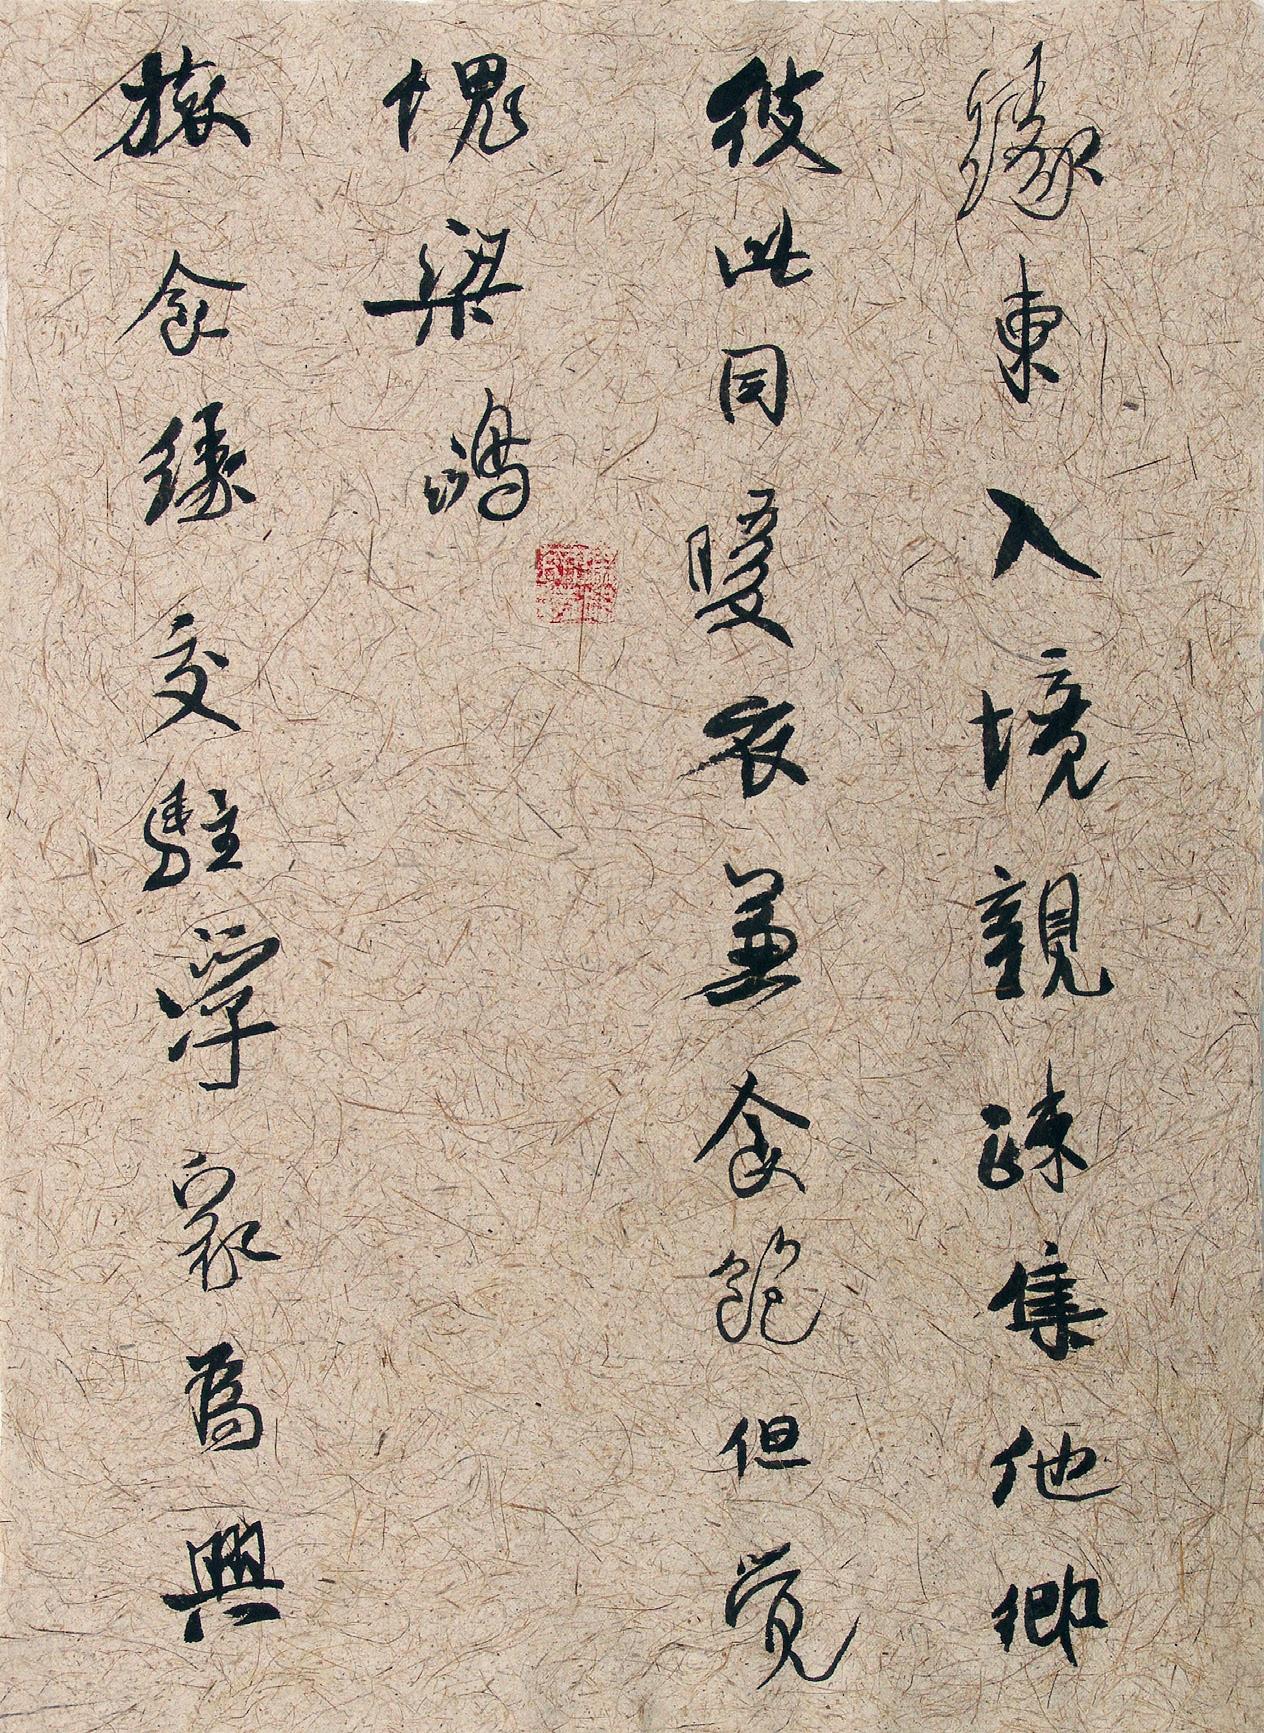 緣東入境親疎集他鄉
彼此同暖衣兼食飽但覺
愧梁鴻
旅食緣交駐浮家為興